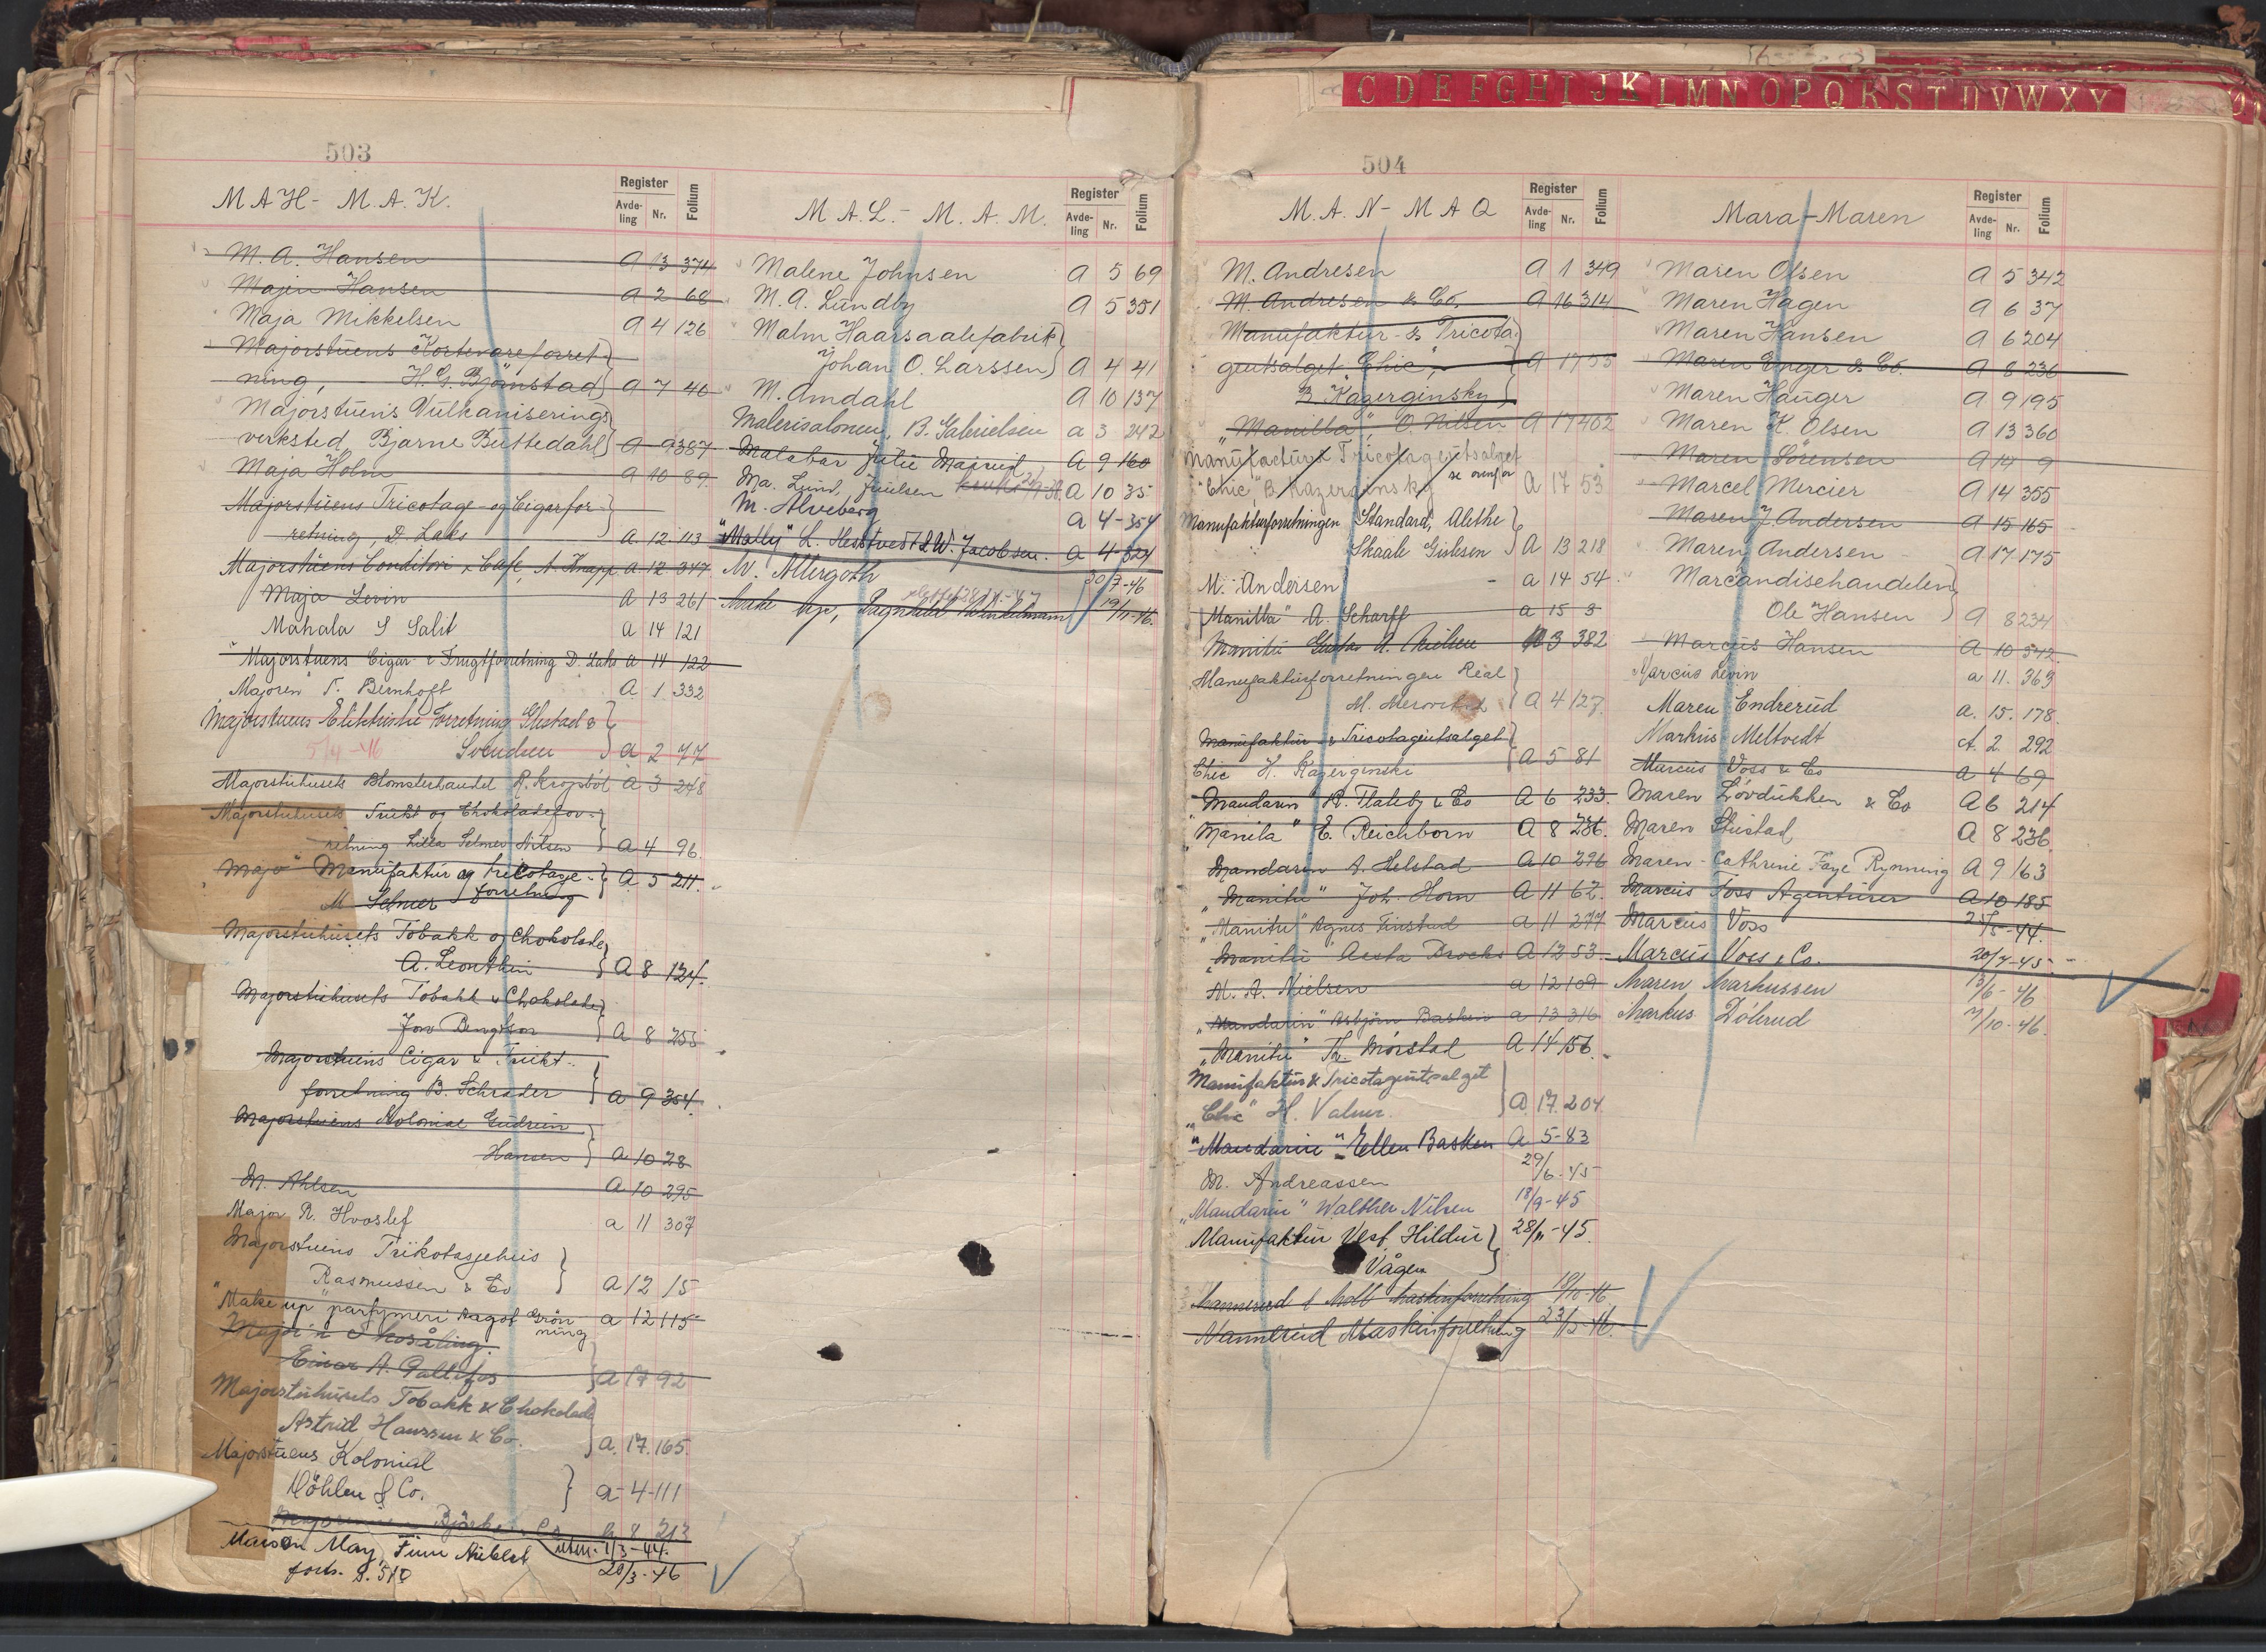 503
MAH - M.A.K.
Register
Avde-ling Nr. Folium
M. A. Hansen A 13 374
Majen Hansen A 2 68
Maja Mikkelsen A 4 126
Majorstuens Kortevareforret-
ning, H. G. Bjørnstad A 7 40
Majorstuens Vulkaniserings
verksted, Bjarne Buttedahl A 9 387
Maja Holm A 10 89
Majorstuens Tricotage- og Cigarfor-
retning, D. Laks A 12 113
Majorstuens Conditori & Cafe, A. Knapp A 12 347
Maja Levin A 13 261
Mahala S Salit A 14 121
"Majorstuens Cigar & Frugtforretning D. Laks A 14 122
"Majoren" T. Bernhoft A 1 332
Majorstuens Elektriske Forretning Glestad &
5/4-46 Svendsen A 2 77
Majorstuhusets Blomsterhandel R. A 3 248
Majorstuhusets Frukt og Chokoladefor-
retning Lilla Selmer Nilsen A 4 96
"Majo" Manufaktur og tricotage-
M Selmer forretning A 5 211
Majorstuhusets Tobakk og Chokolade
A. Leonthin A 8 124
Majorstuhusets Tobakk & Chokolade
Jon Bengtson A 8 255
Majorstuens Cigar & Frukt-
forretning B. Schrader A 9 304
Majorstuens Kolonial Gudrun
Hansen A 10 28
M. Ahlsen A 10 295
Major R. Hvoslef A 11 307
Majorstuens Trikotasjehus
Rasmussen & Co A 12 15
"Make up" parfymeri Aagot Grön
ning A 12 115
Einar A. A 17 92
Majorstuhusets Tobakk & Chokolade
Astrid Hanssen & Co. A. 17. 165.
Majorstuens Kolonial
Döhlen & Co. A-4-111
Bjørke & Co A 8 213
Maison May, Finn 1/3-44
forts. S. 510 20/3-46
M.A.L. - M.A.M.
Register
Avde-ling Nr. Folium
Malene Johnsen A 5 69
M. A. Lundby A 5 351
Malm Haarsaalefabrik
Johan O. Larssen A 4 41
M. Amdahl A 10 137
Malerisalonen, B. Gabrielsen A 3 242
Malabar Julie A 9 160
Ma. Lund, Juulsen A 10 35
M. Alveberg A 4-354
"Mally" L. Hesstvedt & W. Jacobsen. A 4-324
M. Allergoth 30/7-46
Make up, 19/11-46.
504
M.A.N - MAQ
Register
Avde-ling Nr. Folium
M. Andresen A 1 349
M. Andresen & Co. A 16 314
Manufaktur- & Tricota-
geutsalget "Chic", A 17 53
B. Kazerginsky
"Manilla", O. Nilsen A 17 402
Manufactur & Tricotageutsalget
"Chic" B. Kazerginsky se ovenfor A 17 53
Manufakturforretningen Standard, Alethe
Skaale Gislesen A 13 218
M. Andersen A 14 54
"Manilla" A. Scharff A 15 3
Manitu Gustav A. Nielsen A 3 382
Manufakturforretningen Real
M. A 4 127
Manufaktur & Tricotageutsalget
Chic H. Kazerginski A 5 81
Mandarin R. Flateby & Co A 6 233.
"Manila" E. Reichborn A 8 286.
Mandarin A. Helstad A 10 296
"Manitu" Joh. Horn A 11 62
"Manitu" Agnes Finstad A 11 277
"Manitu" Aasta Brochs A 12 53
M. A. Nielsen A 12 109
"Mandarin" Asbjørn Basken A 13 316
"Manitu" Th. Mørstad A 14 156
Manufaktur & Tricotageutsalget
"Chic" H. Valner. A 17. 204
"Mandarin" Ellen Basken A 5-83
M. Andreassen 29/6-45
"Mandarin" Walther Nilsen 18/9-45
Manufaktur Vesf. Hildur 28/11-45.
Vågen
Mannerud & Moll Maskinforretning 18/10-46
Mannerud Maskinforretning 23/12-46.
C D E F G H I J K L M N O P Q R S T U V W X Y
Mara-Maren
Register
Avde-ling Nr. Folium
Maren Olsen A 5 342
Maren Hagen A 6 37
Maren Hansen A 6 204
Maren Enger & Co. A 8 236
Maren Hauger A 9 195
Maren K. Olsen A 13 360
Maren Sørensen A 14 9
Marcel Mercier A 14 355
Maren J Andersen A 15 165
Maren Andersen A 17 175
Marcandisehandelen,
Ole Hansen A 8 234
Marcus Hansen A 10 342
Marcus Levin A 11. 363
Maren Endrerud A. 15. 178.
Markus Meltvedt A. 2. 292
Marcus Voss & Co A 4 69
Maren Løvdukken & Co A 6 214
Maren Stustad A 8 236
Maren-Cathrine Faye Rynning A 9 163
Marcus Foss Agenturer A 10 185
Marcus Voss 25/5-44.
Marcus Voss & Co. 20/7-45
Maren Markussen 13/6-46
Markus Dølerud 7/10-46.